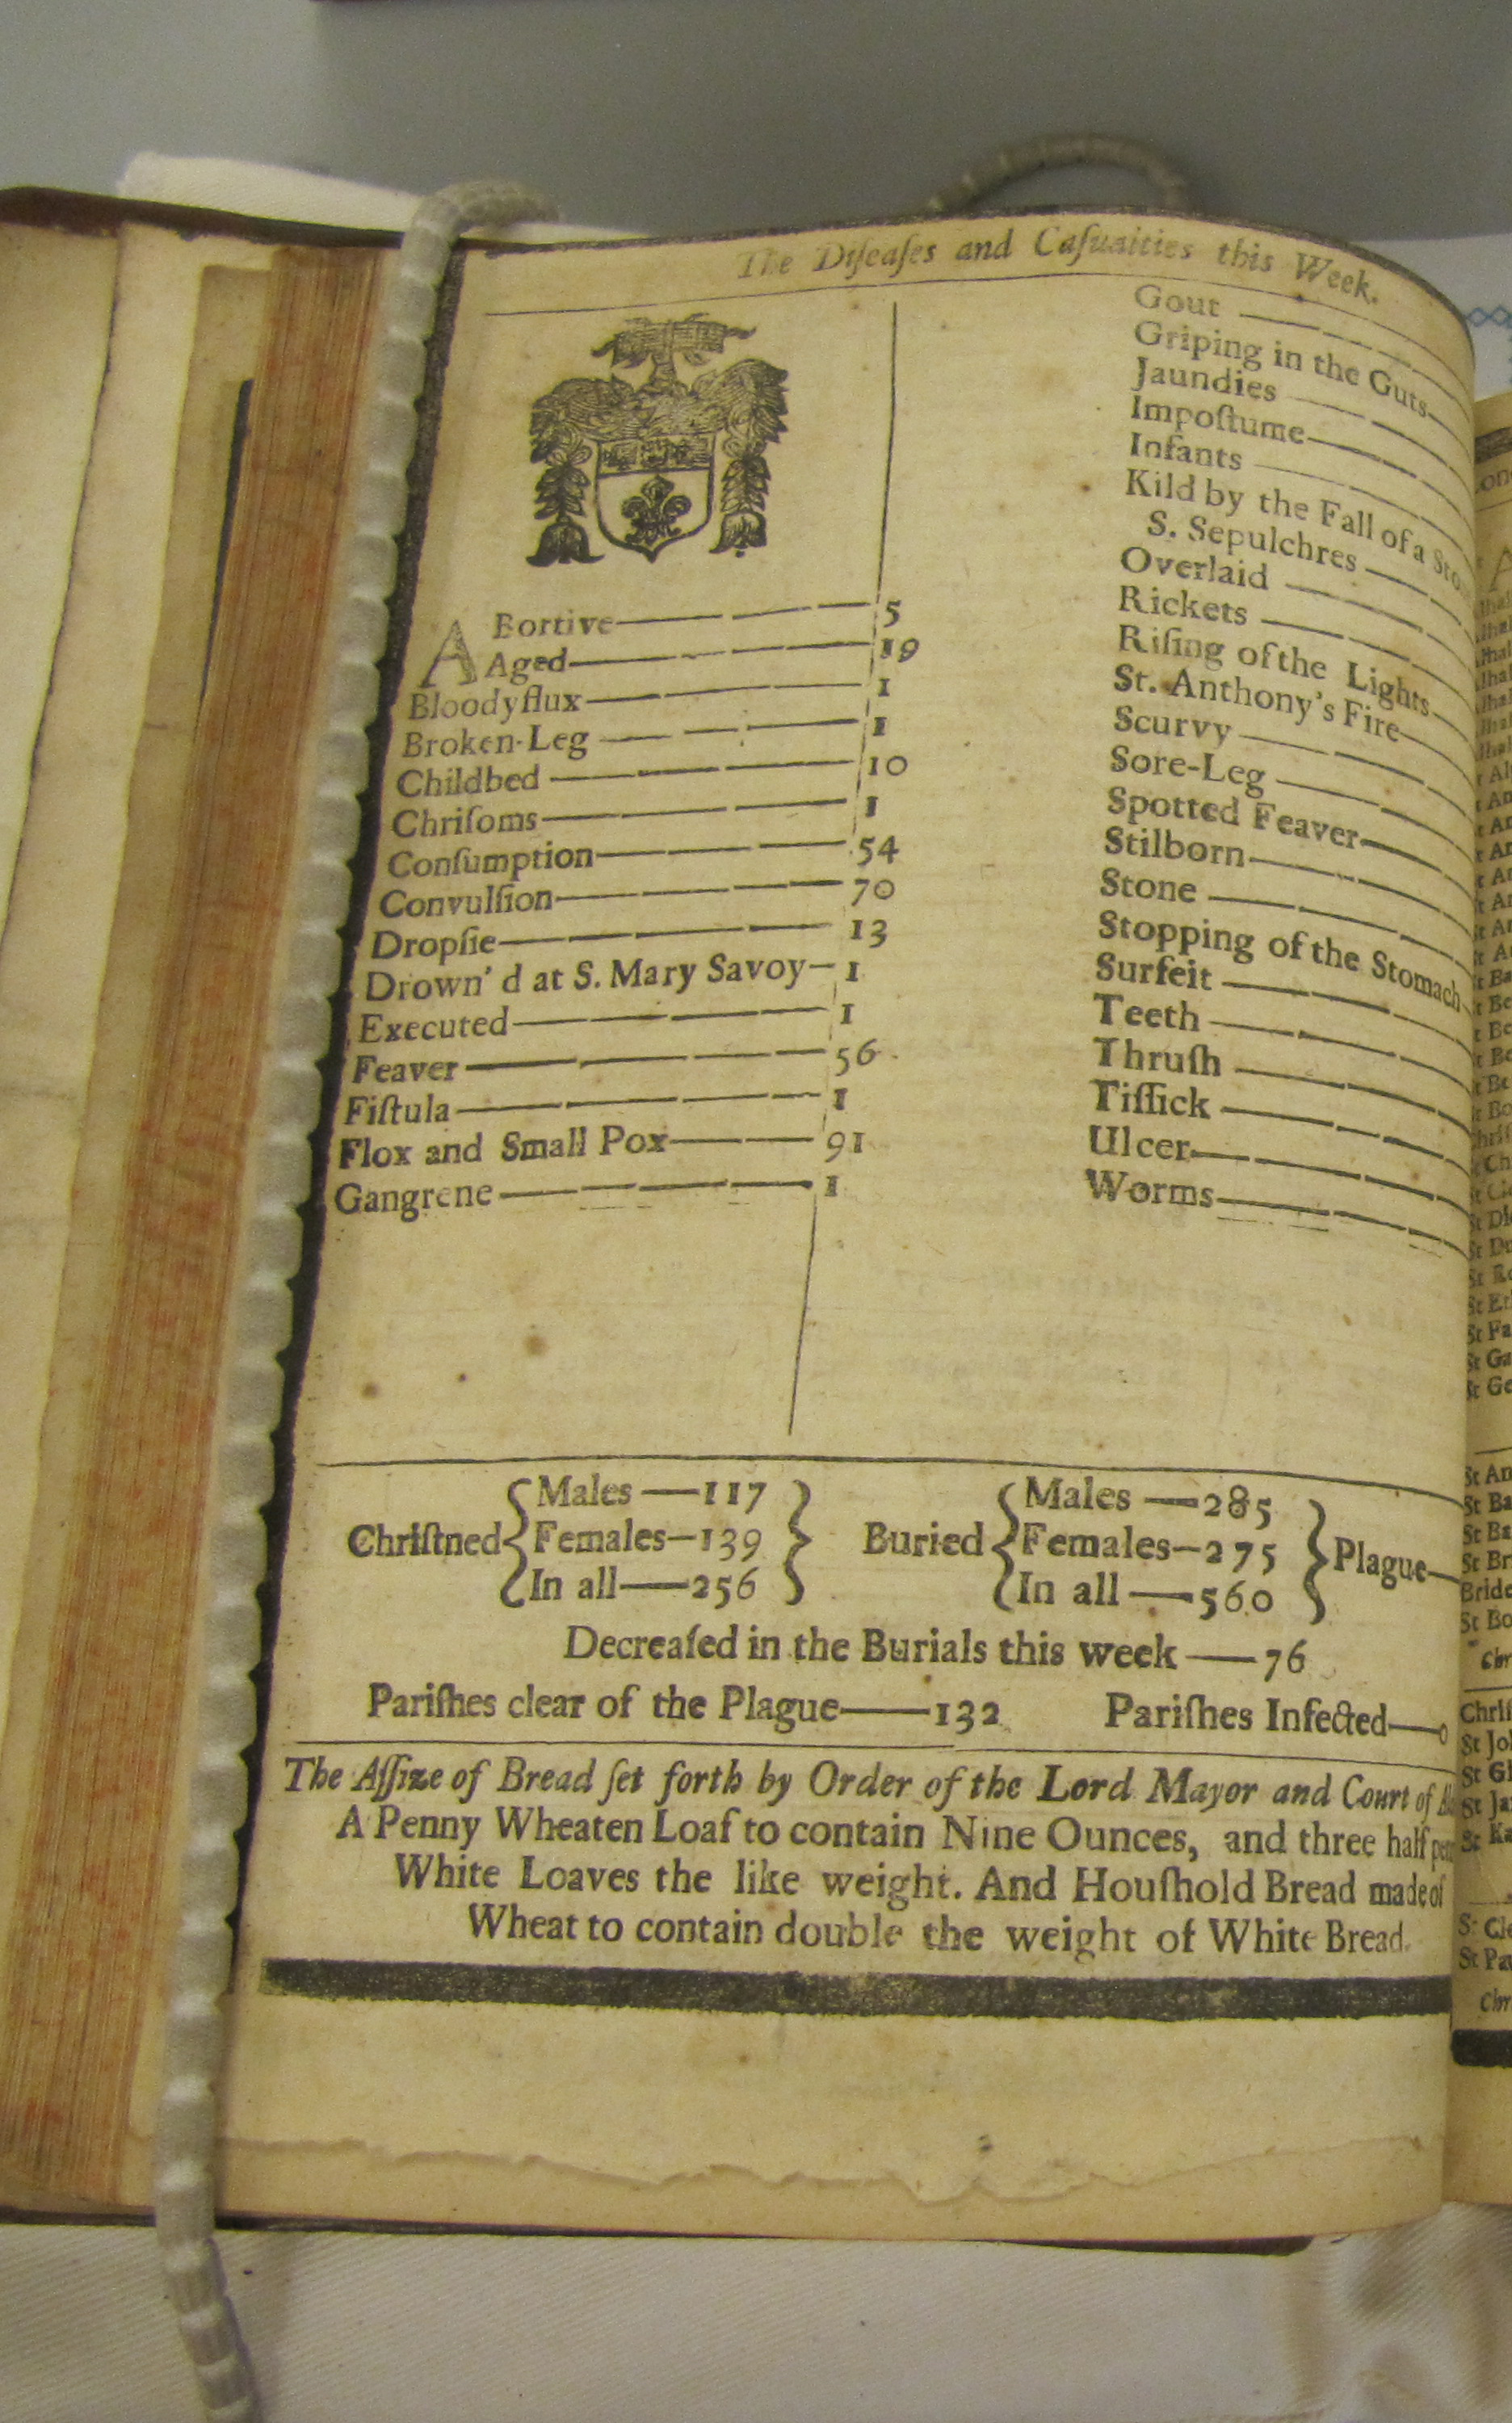 The Diſeaſes and Caſualties this Week.
ABortive 5
Aged 19
Bloodyflux 1
Broken-Leg 1
Childbed 10
Chriſoms 1
Conſumption 54
Convulſion 70
Dropſie 13
Drown'd at S. Mary Savoy 1
Executed 1
Feaver 56
Fiſtula 1
Flox and Small Pox 91
Gangrene 1
Gout
Griping in the Guts
Jaundies
Impoſtume
Infants
Kild by the Fall of a
S. Sepulchres
Overlaid
Rickets
Riſing of the Lights
St. Anthony's Fire
Scurvy
Sore-Leg
Spotted Feaver
Stilborn
Stone
Stopping of the Stomach
Surfeit
Teeth
Thruſh
Tiſſick
Ulcer
Worms
Chriſtned
Males — 117
Females — 139
In all — 256
Buried
Males — 285
Females — 275
In all — 560
Plague
Decreaſed in the Burials this week — 76
Pariſhes clear of the Plague — 132 Pariſhes Infected — 0
The Aſſize of Bread ſet forth by Order of the Lord Mayor and Court of
A Penny Wheaten Loaf to contain Nine Ounces, and three half
White Loaves the like weight. And Houſhold Bread made of
Wheat to contain double the weight of White Bread.